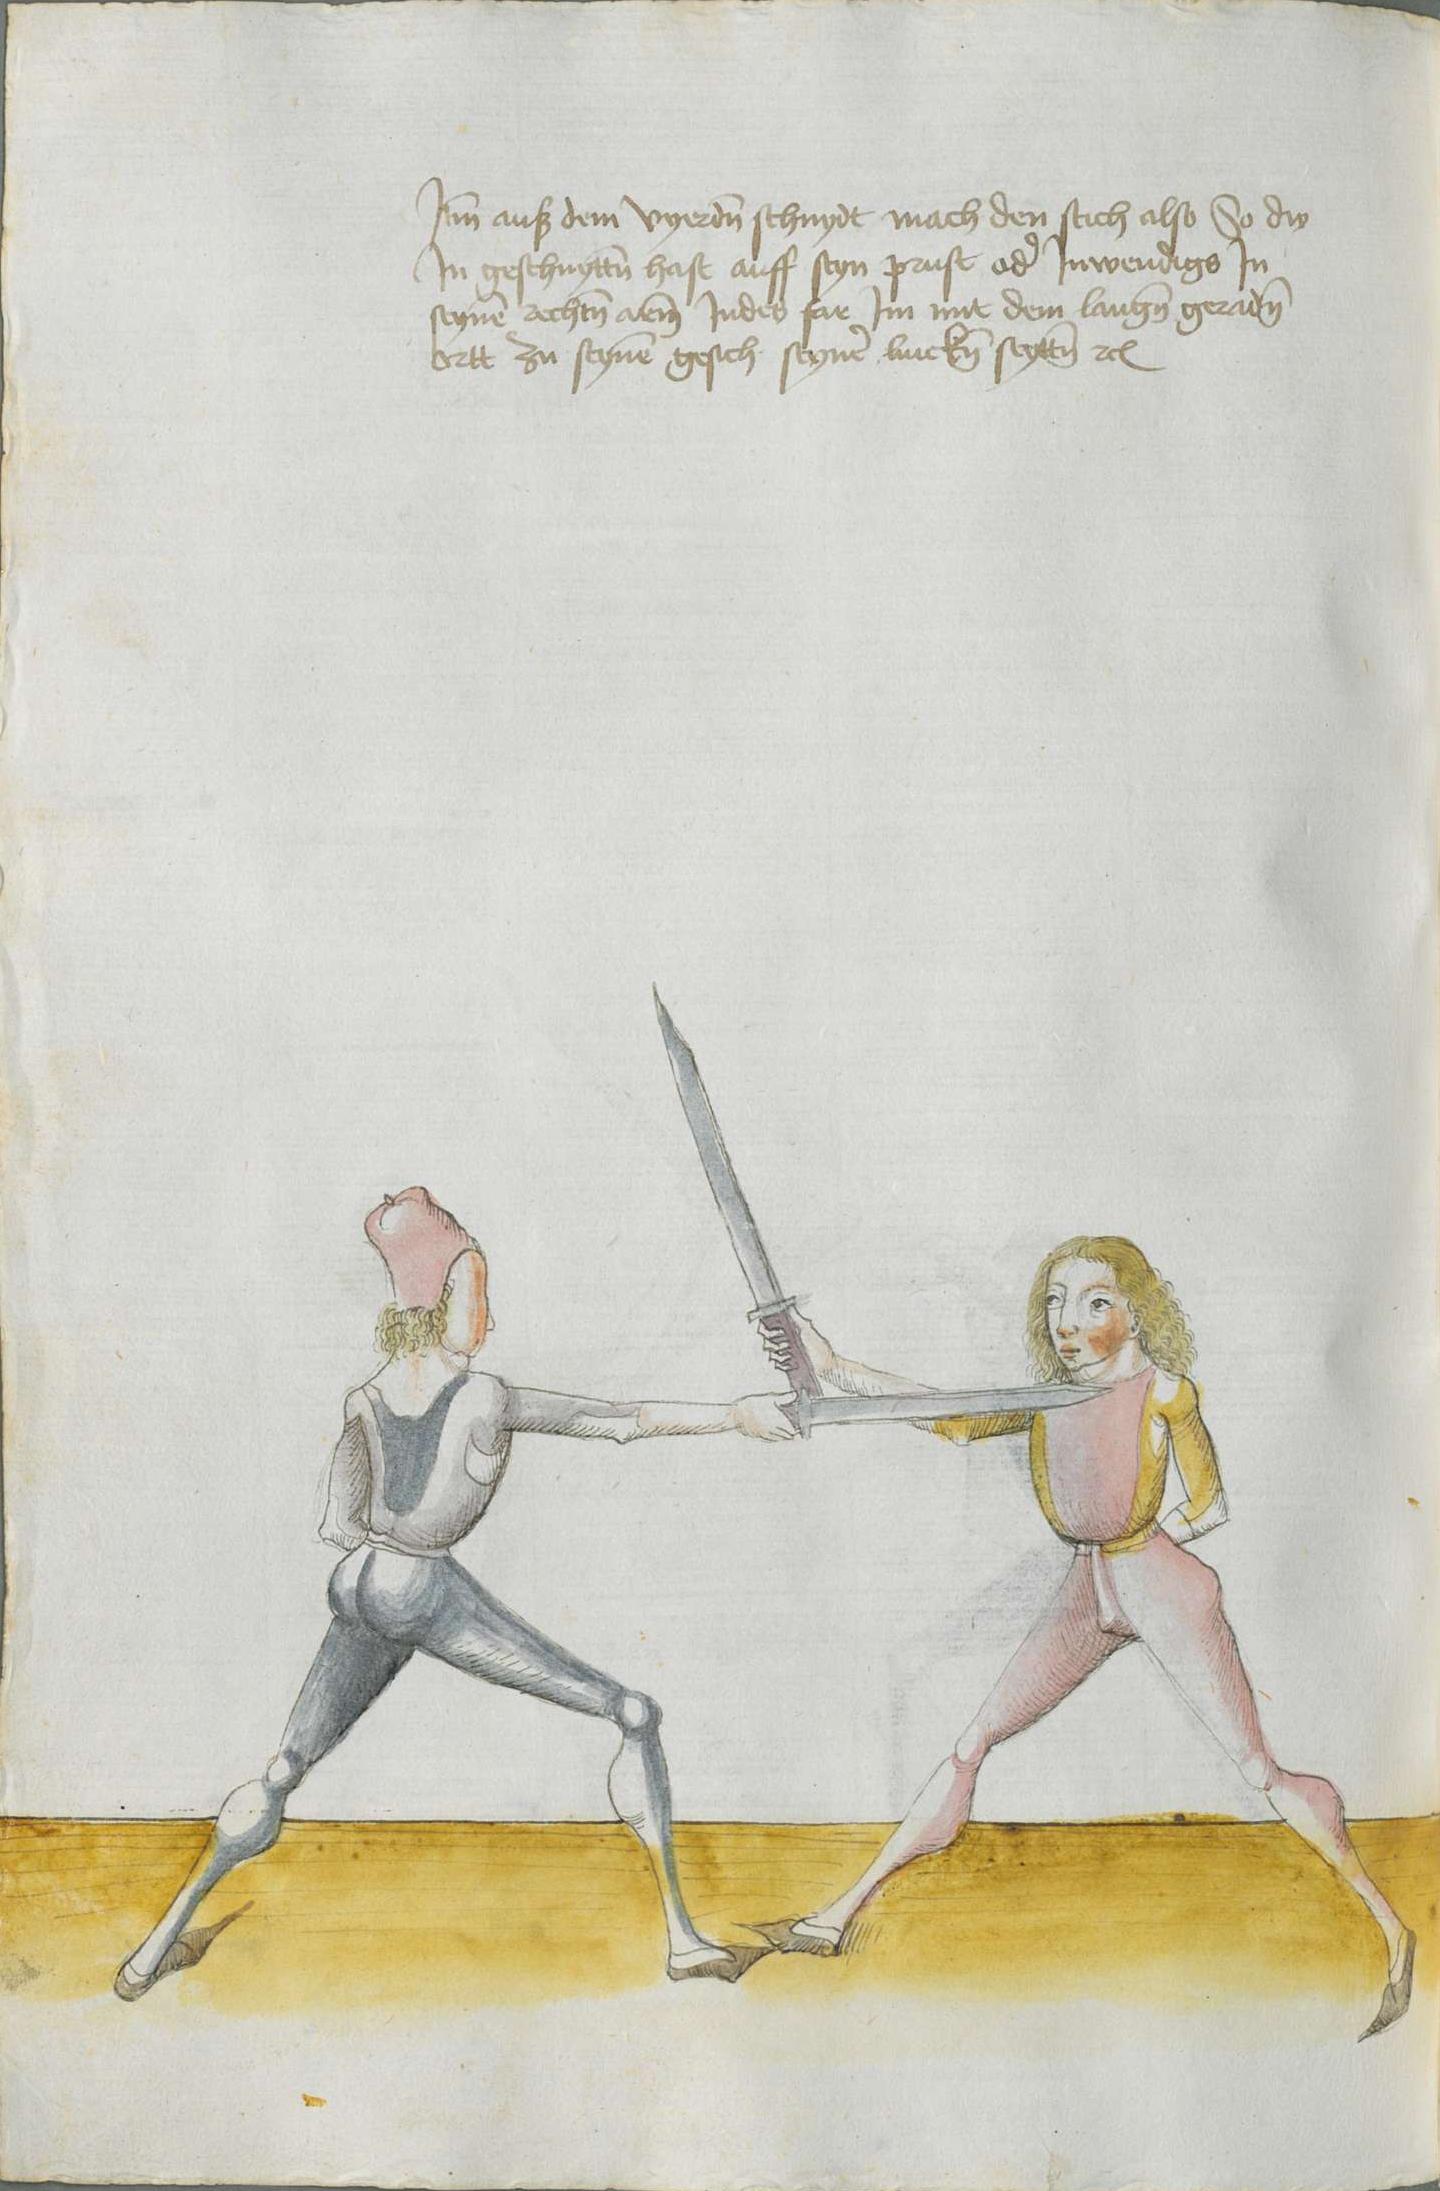 Itm̄ auß dem vyerdn̄ schnydt mach den stich also So dw
In geschnyttn̄ hast auff seyn prust od̕ Inwendigs In
seynē rechtn̄ arm̄ Indes far Im mit dem langn̄ geradn̄
ortt zu seynē gesich seyner̕ linckn̄ seyttn̄ ⁊c̃